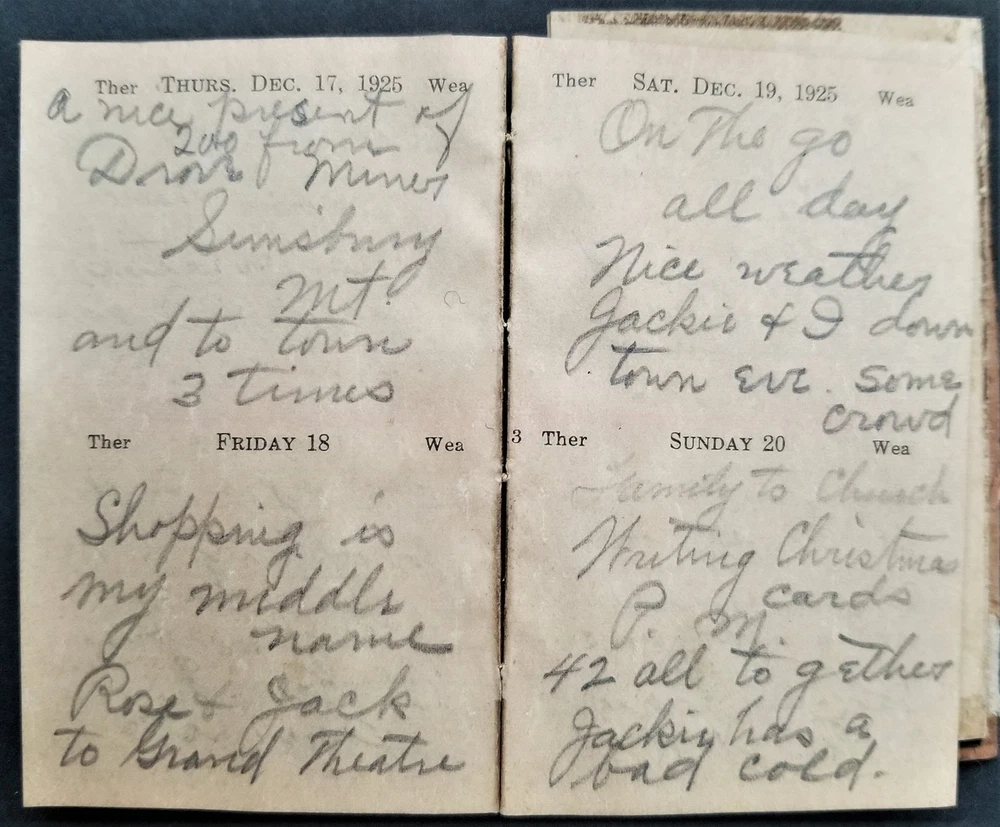 Ther THURS. DEC. 17, 1925 Wea
a nice present of
200 from
Drove Miner
Simsbury
Mt.
and to town
3 times
Ther FRIDAY 18 Wea
Shopping is
my middle
name
Rose & Jack
to Grand Theatre
Ther SAT. DEC. 19, 1925 Wea
On The go
all day
Nice weather
Jackie & I down
town eve. some
crowd
3 Ther SUNDAY 20 Wea
Family to Church
Writing Christmas
cards
P. M.
42 all to gether
Jackie has a
bad cold.